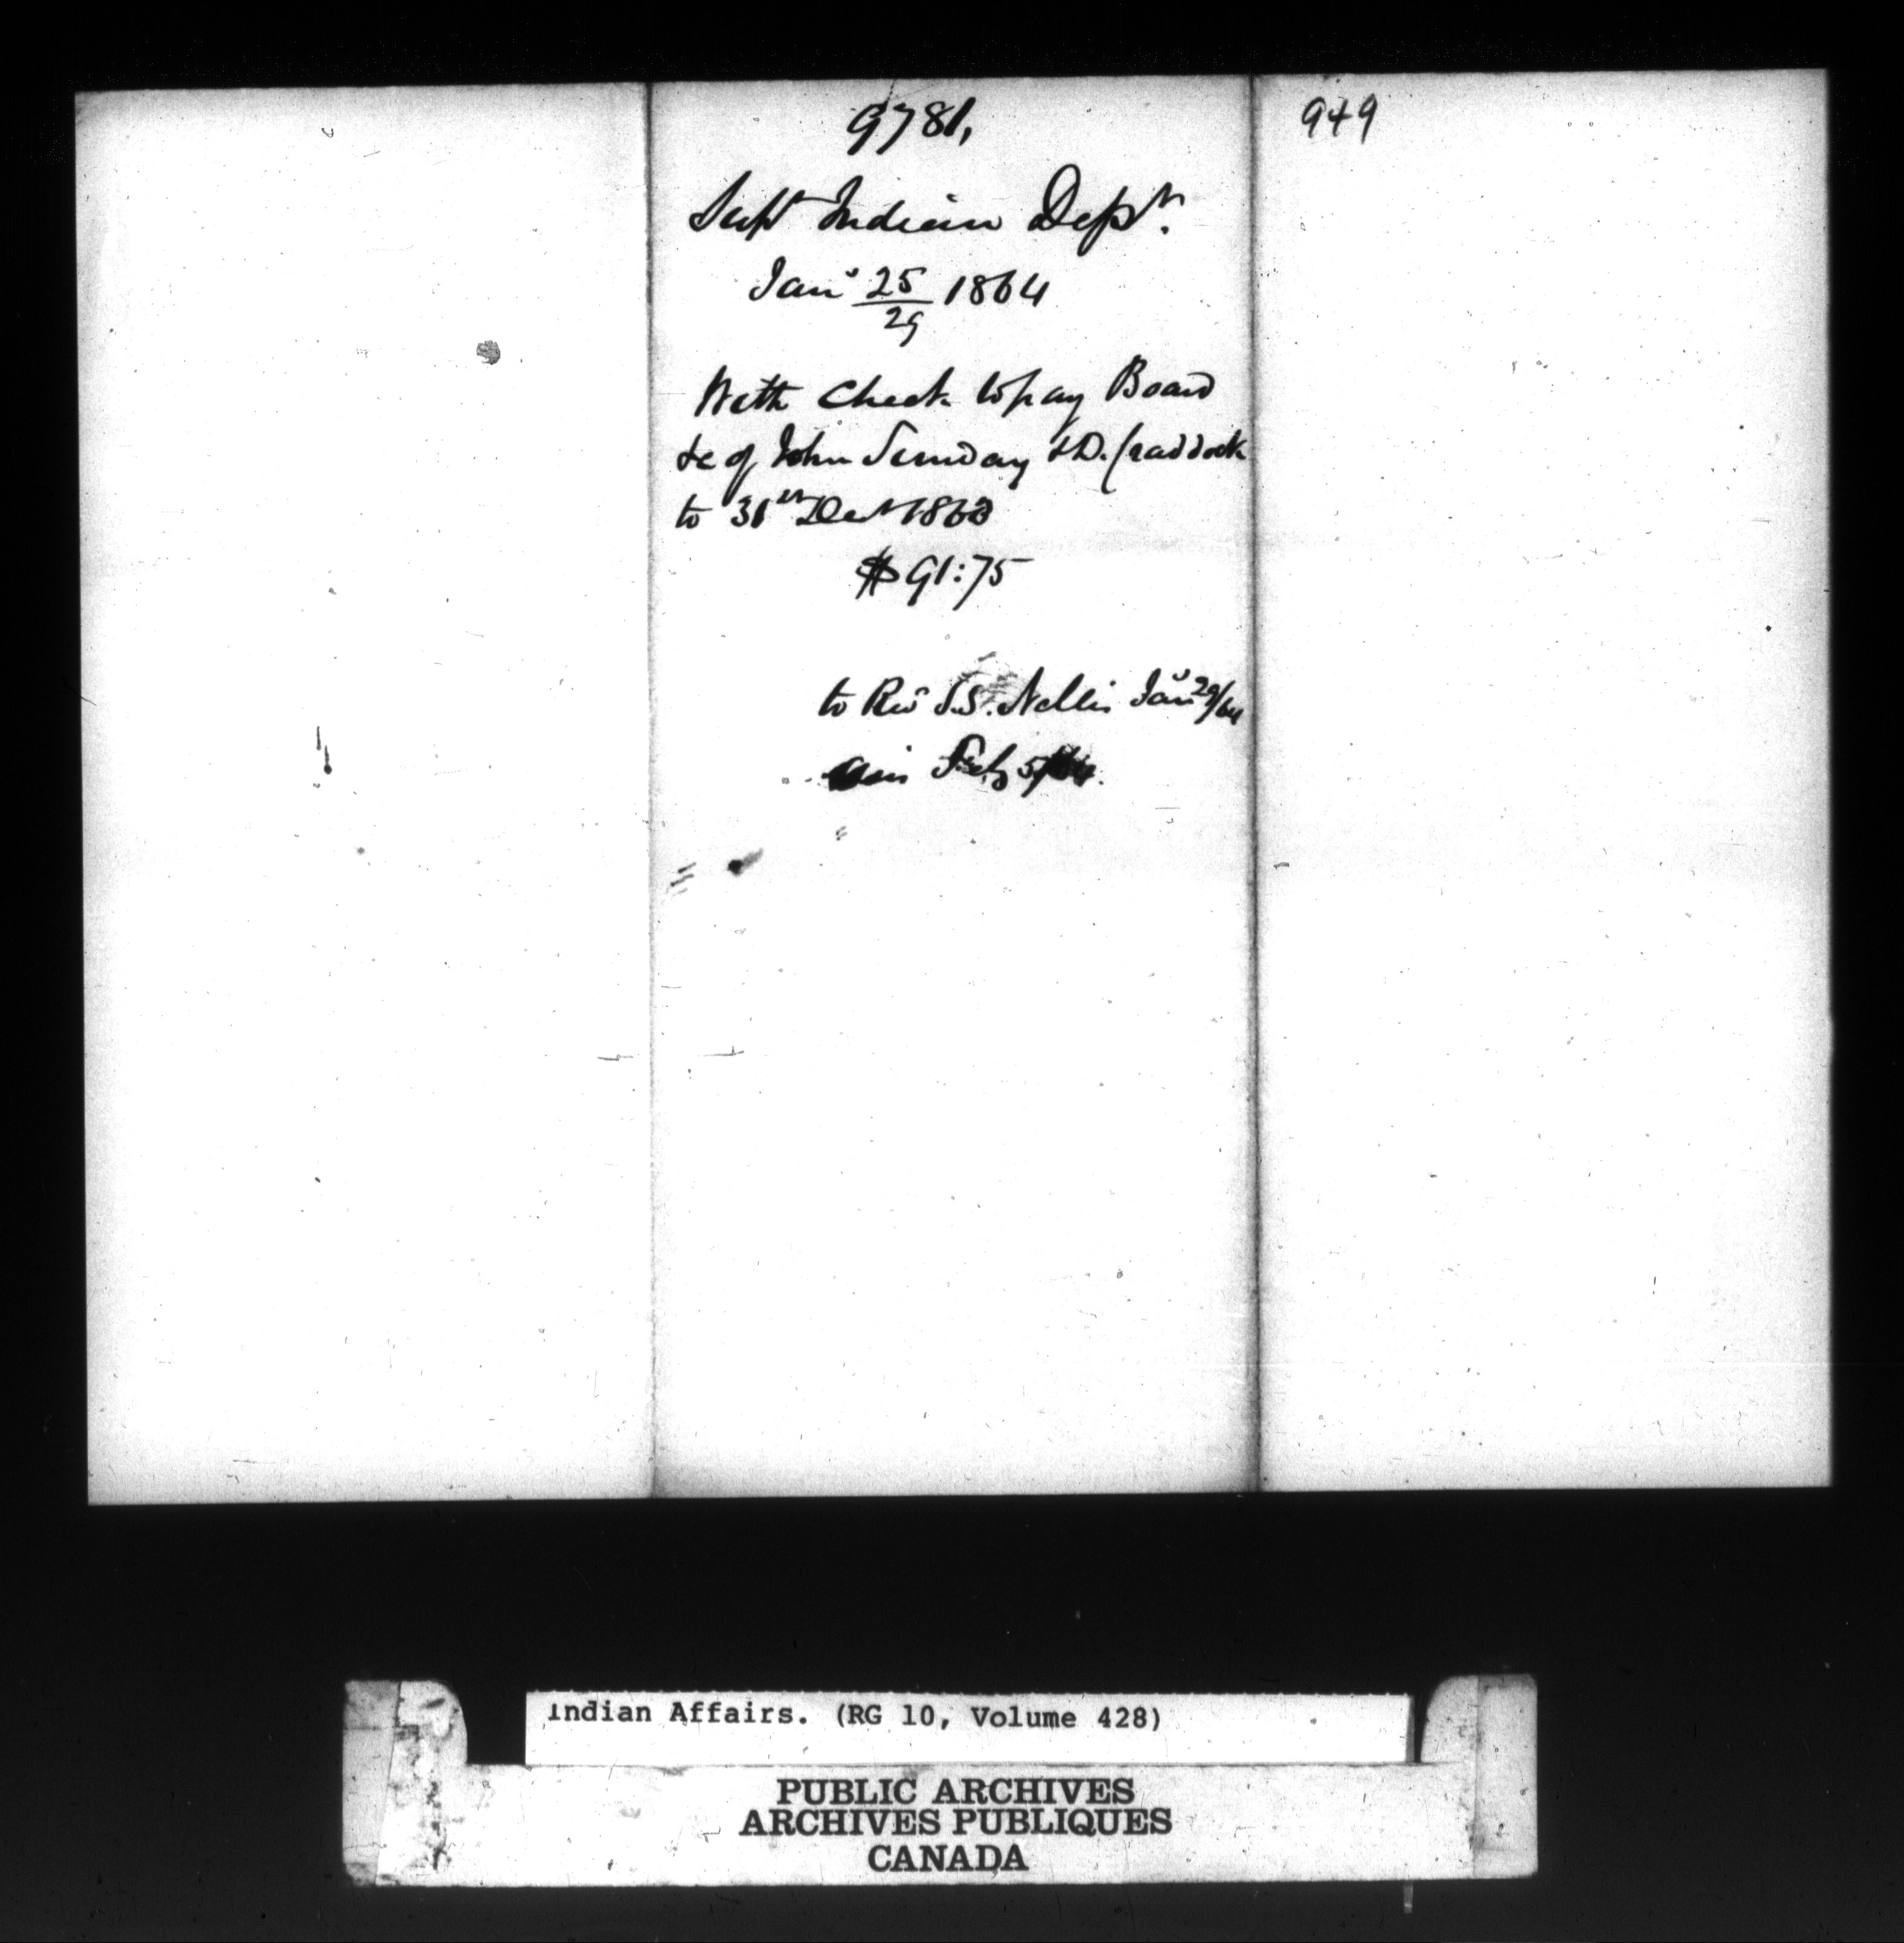 9781,
949
Supt Indian Dept.
Jany 25/29 1864
With Check to pay Board
&c of John Sunday & D. Craddock
to 31st Decr 1863
$91:75
to Revd Nelles Jany 29/64
Feby 5/64
Indian Affairs. (RG 10, Volume 428)
PUBLIC ARCHIVES
ARCHIVES PUBLIQUES
CANADA